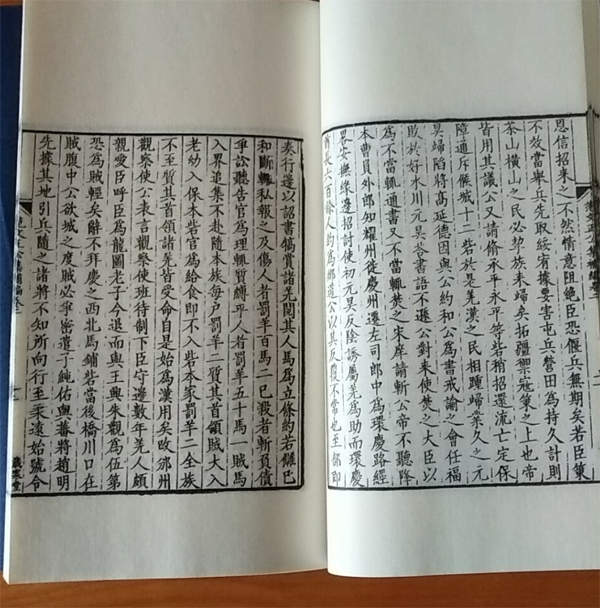 恩信招来之不然情意阻絶臣恐偃兵無期矣若臣策
不效當舉兵先取綏宥據要害屯兵營田為持久計則
茶山横山之民必挈族来歸矣拓疆禦寇策之上也帝
皆用其議公又請脩承平永平等砦稍招還流亡定保
障通斥候城十二砦於是羌漢之民相踵歸業久之元
昊歸陷將高延德因與公約和公為書戒諭之會任福
敗於好水川元昊荅書語不遜公對来使焚之大臣以
為不當輒通書又不當輒焚之宋庠請斬公帝不聽降
本曹員外郎知耀州徙慶州遷左司郎中為環慶路經
畧安撫緣邊招討使初元昊反陰誘屬羌為助而環慶
酋長六百餘人約為鄉道公以其反覆不常也至部即
奏行邉以詔書犒賞諸羌閲其人馬為立條約若讎已
和斷輒私報之及傷人者罰羊百馬二已殺者斬負債
爭訟聽告官為理輒質縛平人者罰羊五十馬一賊馬
入界追集不赴隨本族每户罰羊二質其首領賊大入
老幼入保本砦官為給食即不入砦本家罰羊二全族
不至質其首領諸羌皆受命自是始為漢用矣改邠州
觀察使公表言觀察使班待制下臣守邉數年羌人頗
親愛臣呼臣為龍圖老子今退而與王興朱觀為伍第
恐為賊輕矣辭不拜慶之西北馬鋪砦當後橋川口在
賊腹中公欲城之度賊必爭密遣子純佑與蕃將趙明
先據其地引兵隨之諸將不知所向行至柔遠始號令
歲寒堂